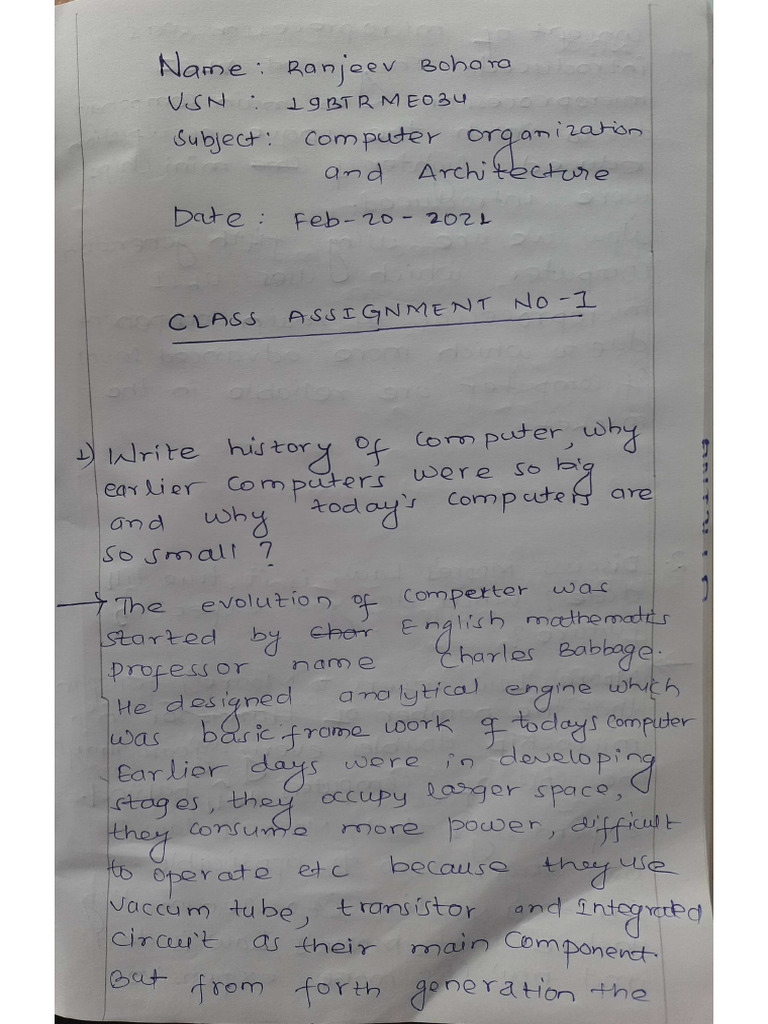 Name : Ranjeev Bohara
USN : 19BTRME034
Subject: Computer organization
and Architecture
Date : Feb-20-2021
CLASS ASSIGNMENT NO-1
1) Write history of computer, why
earlier computers were so big
and why today's computers are
so small ?
→ The evolution of computer was
started by English mathematics
professor name Charles Babbage.
He designed analytical engine which
was basic frame work of todays computer
Earlier days were in developing
stages, they occupy larger space,
they consume more power, difficult
to operate etc because they use
vaccum tube, transistor and Integrated
circuit as their main component.
But from forth generation the